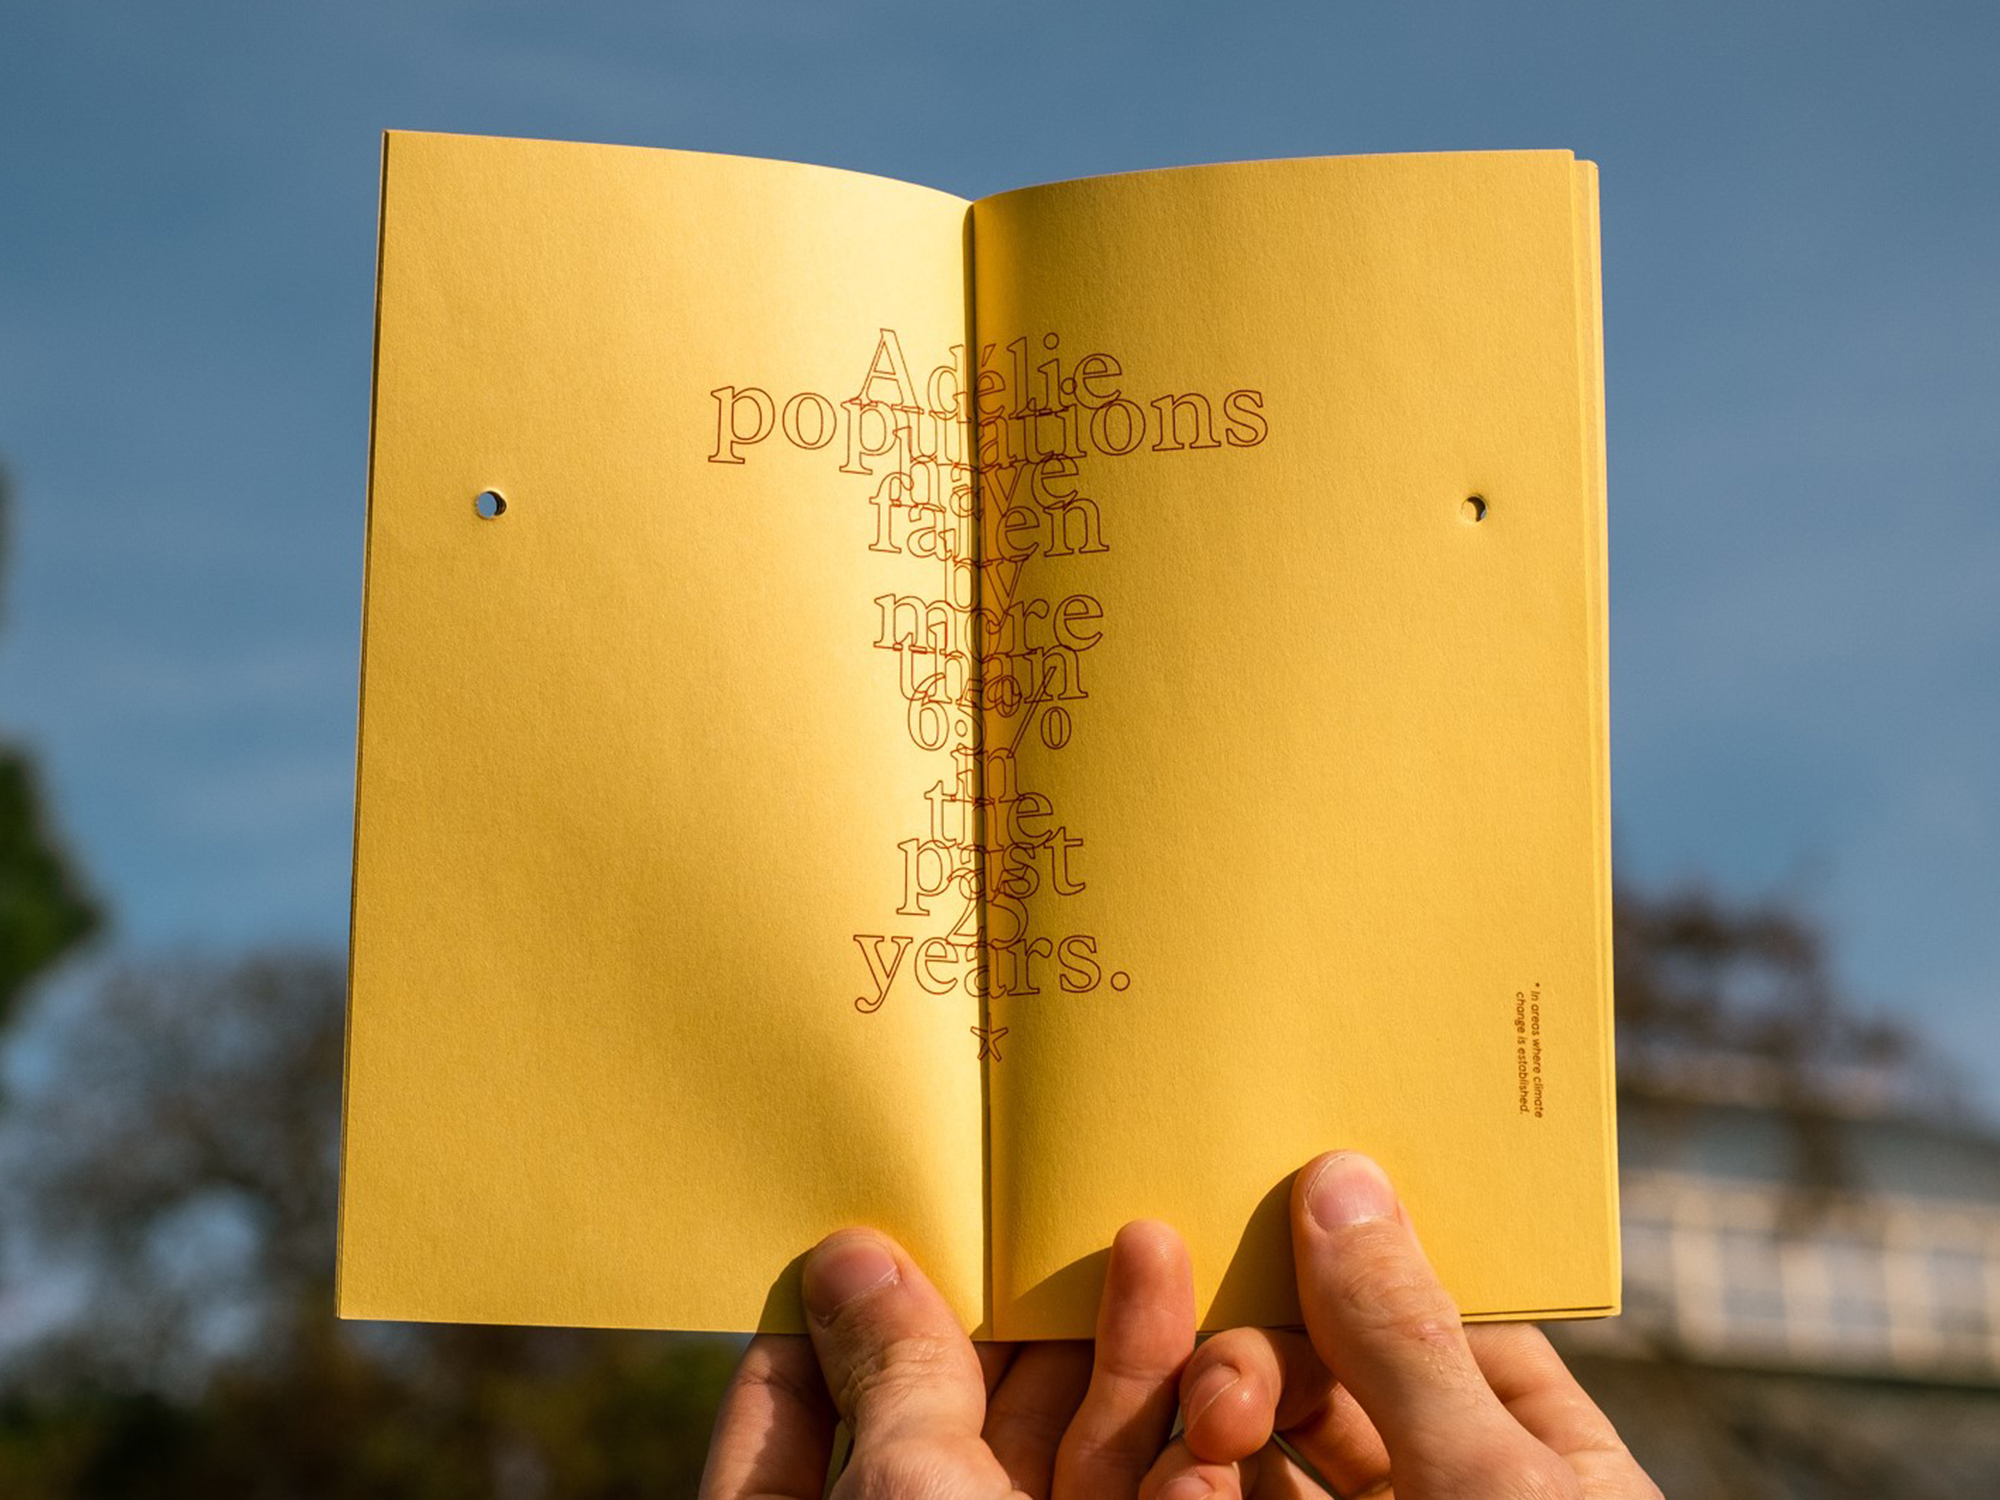 Adélie
populations
have
fallen
by
more
than
65%
in
the
past
25
years.
*
* In areas where climate
change is established.